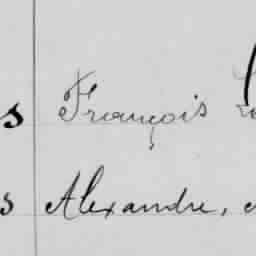 s François
s Alexandre,